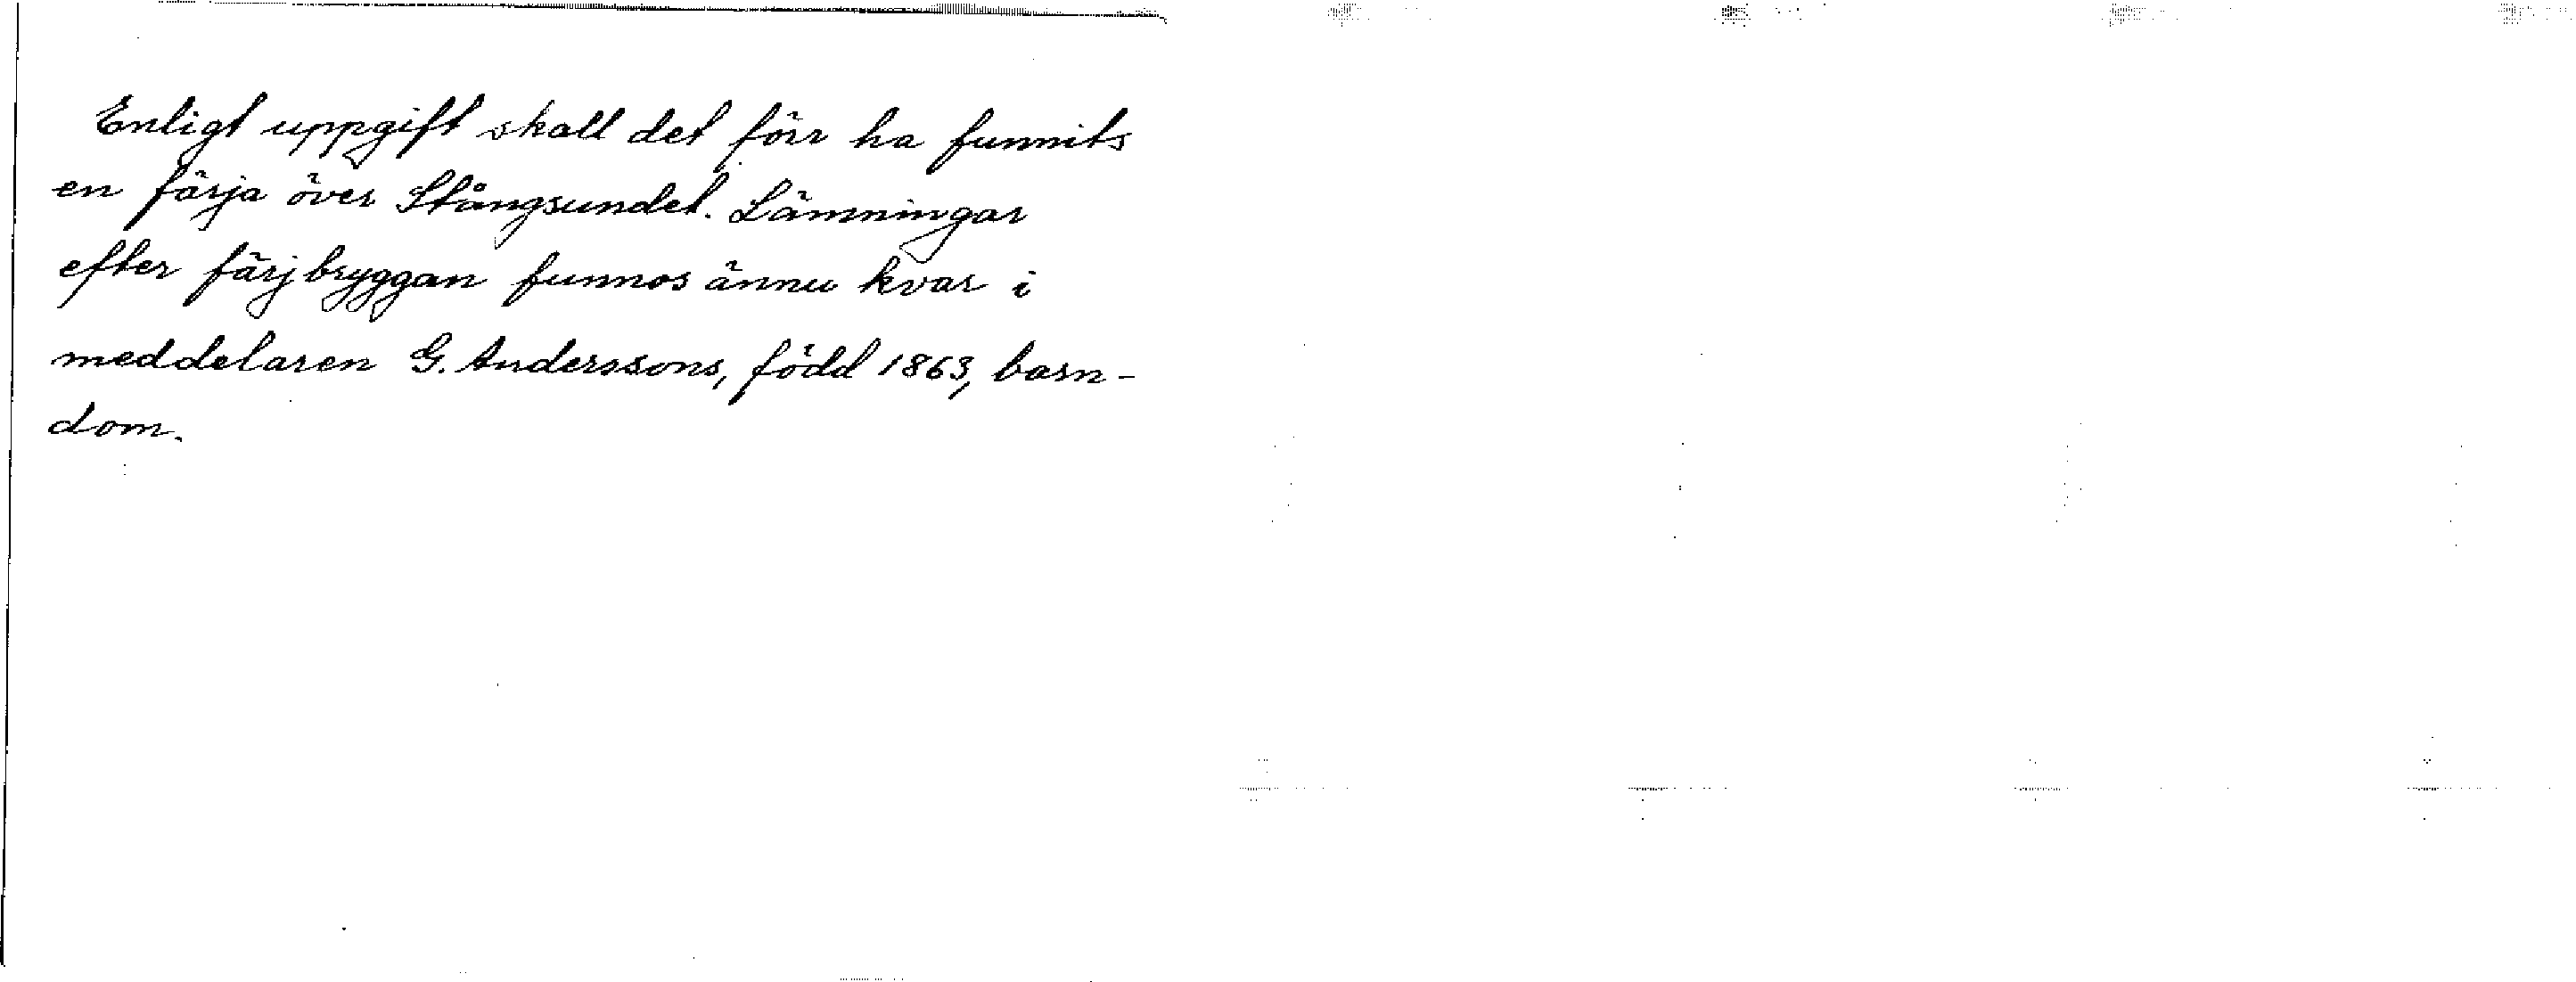 Enligt uppgift skall det förr ha funnits
en färja över Stångsundet. Lämningar
efter färjbryggan funnos ännu kvar i
meddelaren G. Anderssons, född 1863, barn-
dom.